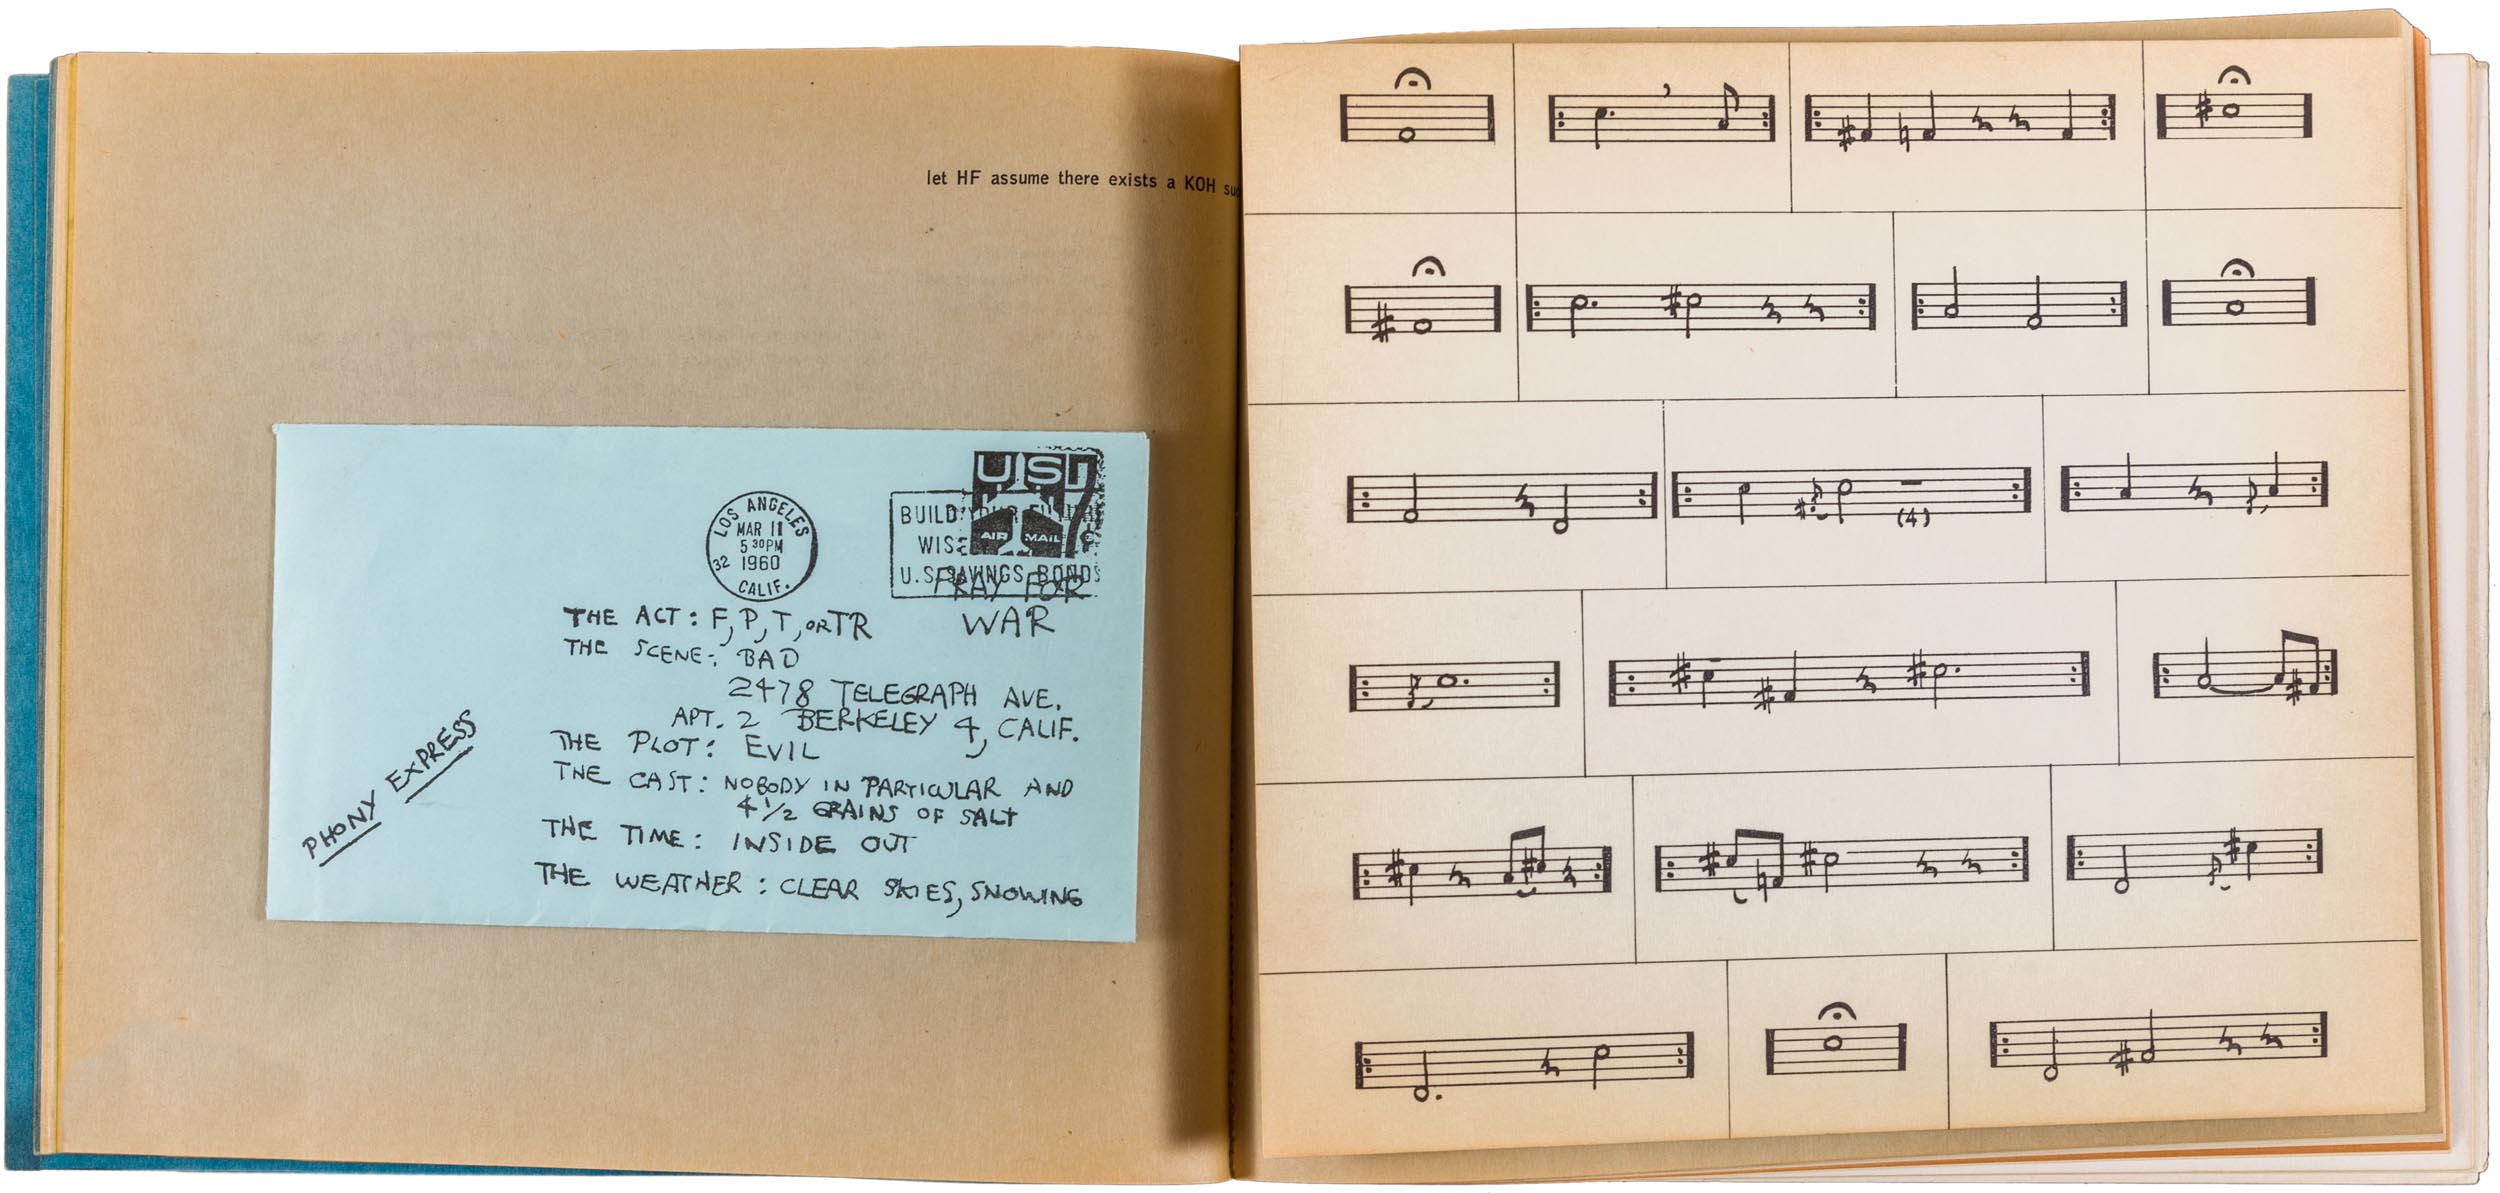 let HF assume there exists a KOH
LOS ANGELES
MAR 11
5 30 PM
1960
CALIF.
32
U.S.
AIR MAIL
7
BUILD YOUR
U.S. SAVINGS BONDS
PRAY FOR
WAR
THE ACT: F, P, T, OR TR
THE SCENE: BAD
2478 TELEGRAPH AVE.
APT. 2 BERKELEY 4, CALIF.
THE PLOT: EVIL
THE CAST: NOBODY IN PARTICULAR AND
4 1/2 GRAINS OF SALT
THE TIME: INSIDE OUT
THE WEATHER: CLEAR SKIES, SNOWING
PHONY EXPRESS
(4)